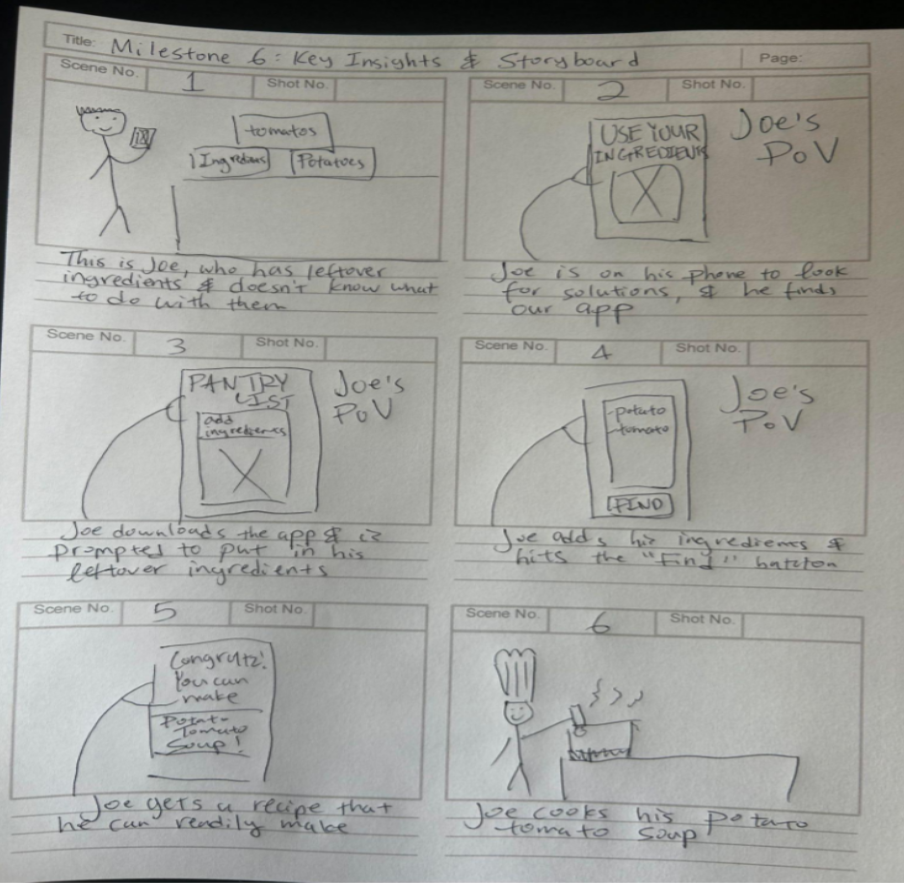 Title: Milestone 6: Key Insights & Storyboard
Page:
Scene No. 1 Shot No.
tomatos
Potatoes
This is Joe, who has leftover
ingredients & doesn't know what
to do with them
Scene No. 2 Shot No.
USE YOUR
INGREDIENTS
Joe's
PoV
Joe is on his phone to look
for solutions, & he finds
our app
Scene No. 3 Shot No.
PANTRY
LIST
add
ingredients
Joe's
PoV
Joe downloads the app & is
prompted to put in his
leftover ingredients
Scene No. 4 Shot No.
-potato
-tomato
FIND
Joe's
PoV
Joe adds his ingredients &
hits the "Find" button
Scene No. 5 Shot No.
Congratz!
You can
make
Potato-
Tomato
Soup!
Joe gets a recipe that
he can readily make
Scene No. 6 Shot No.
Joe cooks his potato
tomato soup